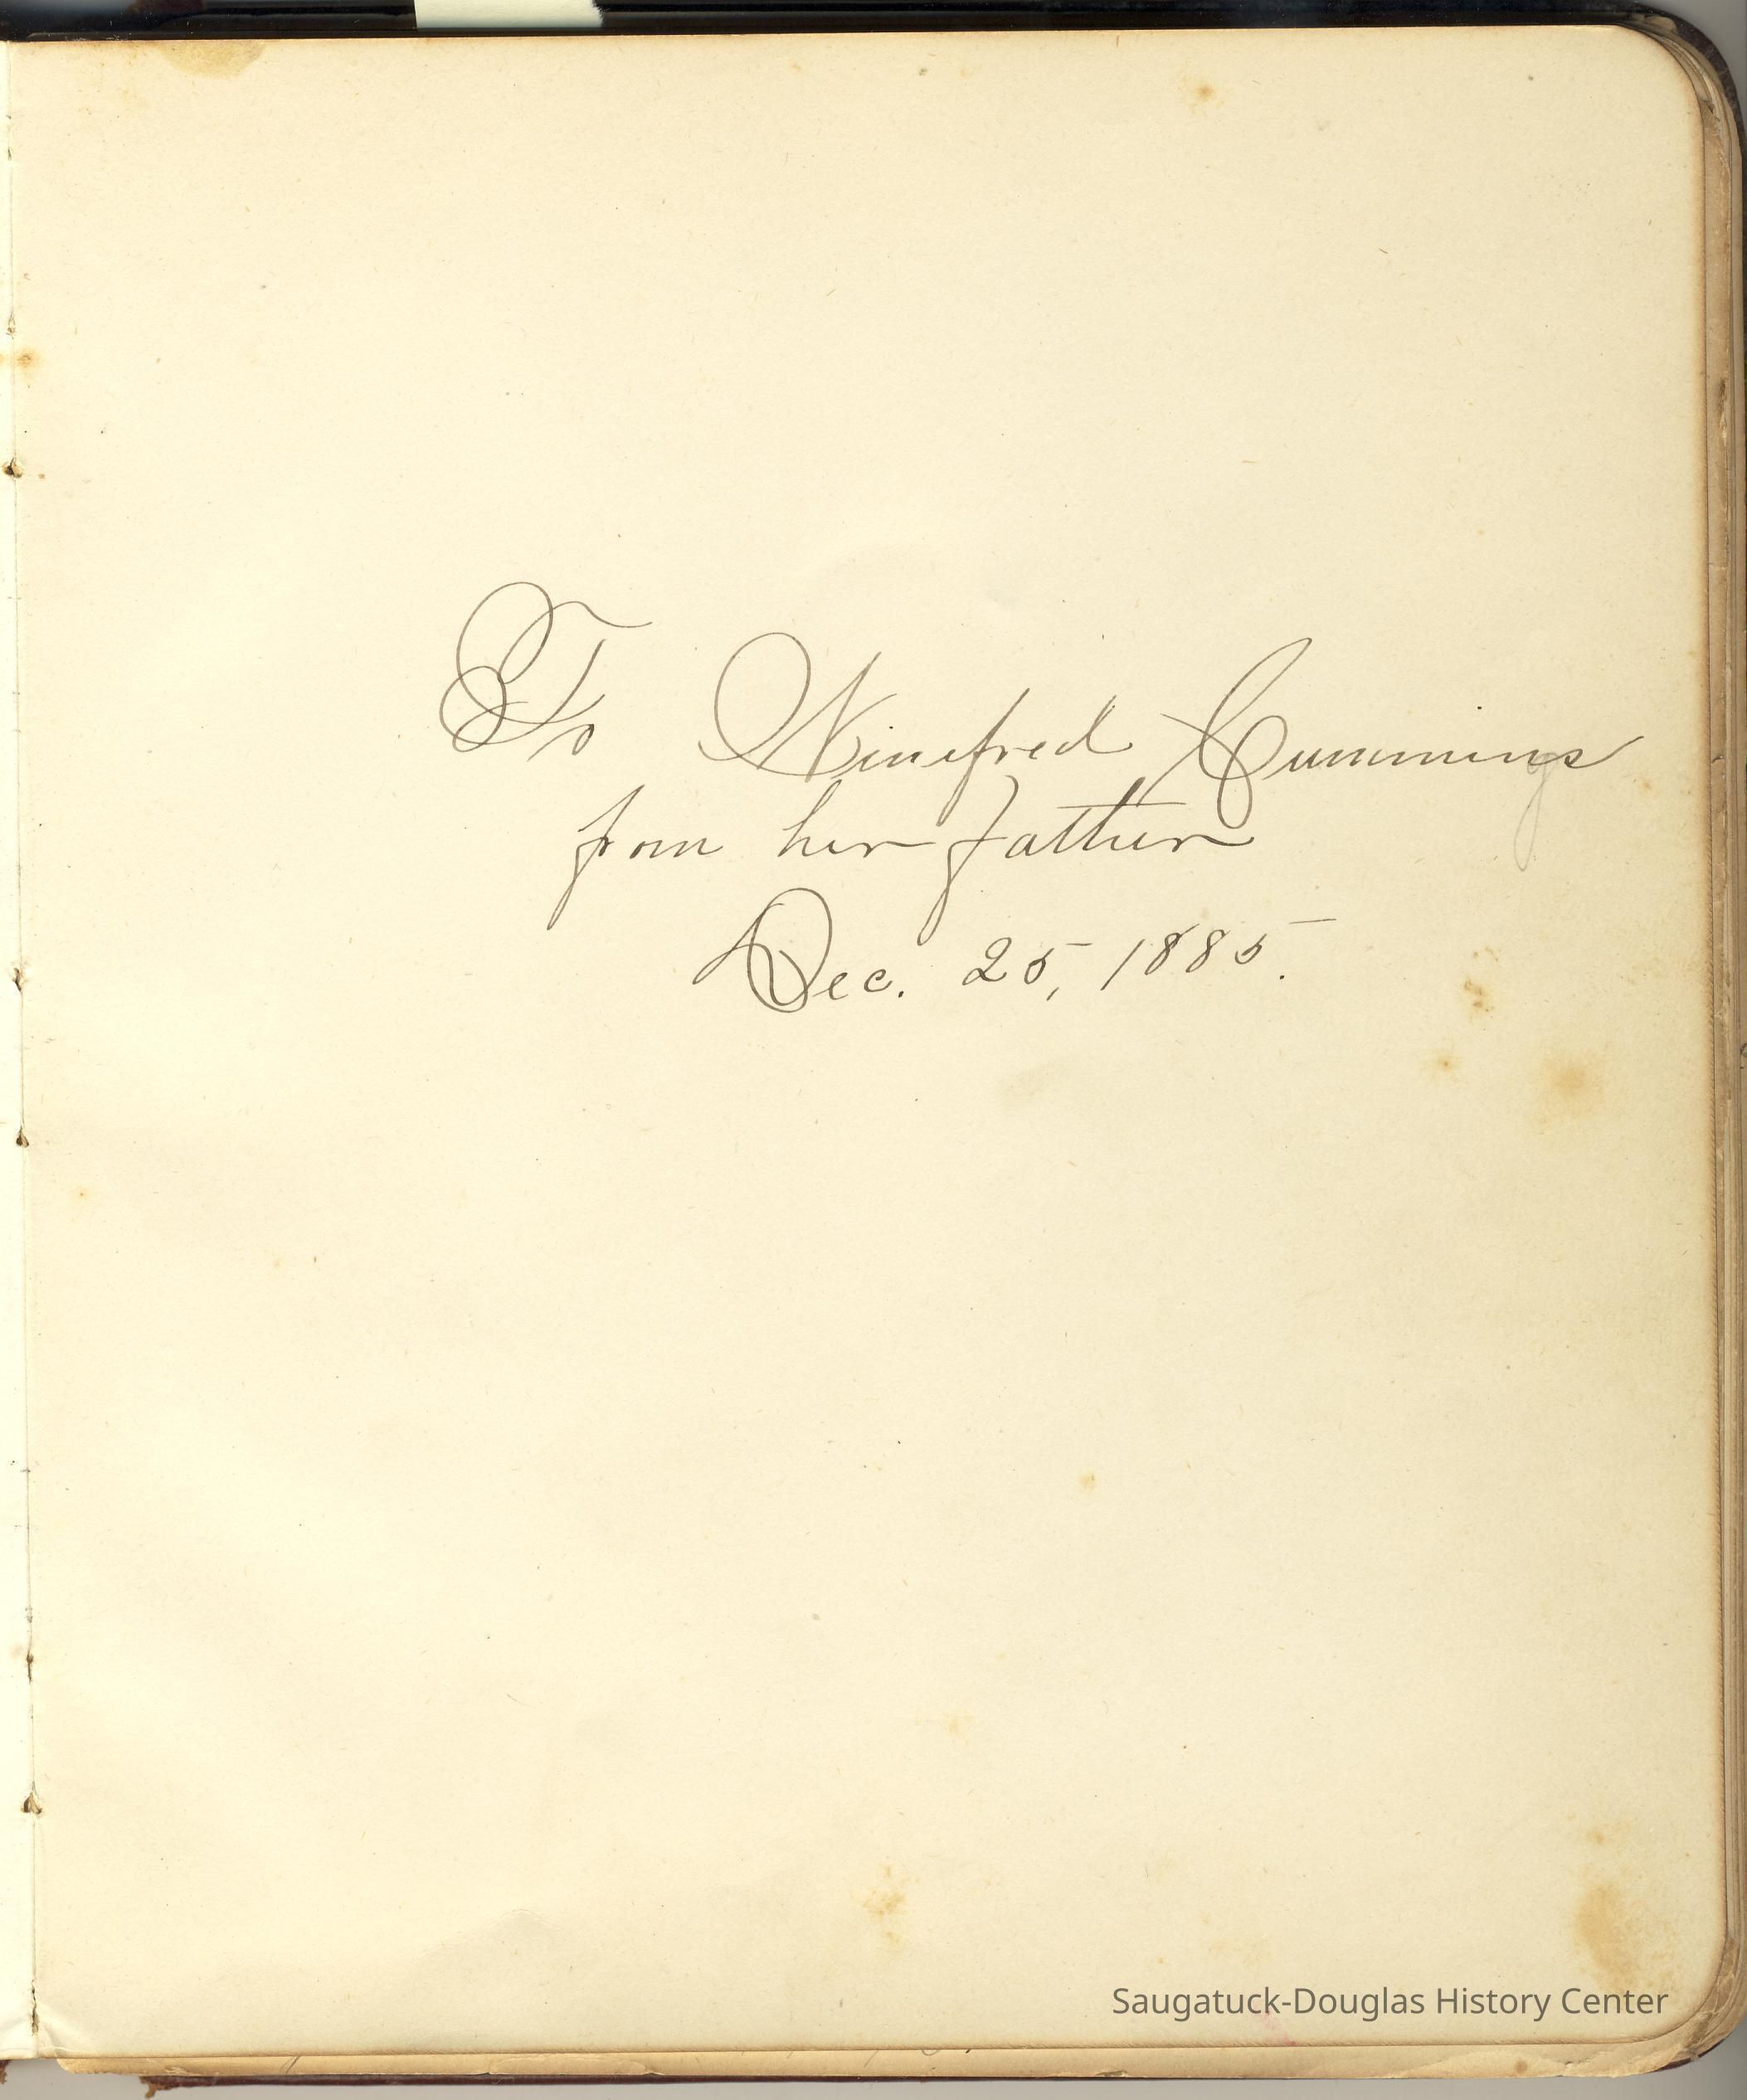 To Winefred Cummins
from her father
Dec. 25, 1885.
Saugatuck-Douglas History Center